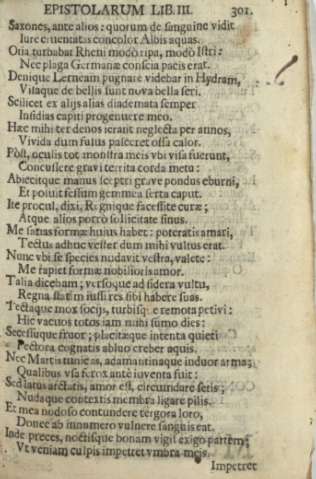 EPISTOLARUM LIB. III. 301.
Saxones, ante alios: quorum de sanguine vidit
Iure cruentatis concolor Albis aquas.
Otia turbabat Rheni modò ripa, modò Istri:
Nec plaga Germanæ conscia pacis erat.
Denique Lernæam pugnare videbar in Hydram,
Visaque de bellis sunt nova bella seri.
Scilicet ex alijs alias diademata semper
Insidias capiti progenuere meo.
Hæc mihi ter denos ierant neglecta per annos,
Vivida dum fulus pasceret ossa calor.
Pòst, oculis tot monstra meis vbi visa fuerunt,
Concussere gravi territa corda metu:
Abiecitque manus sceptri grave pondus eburni,
Et posuit fessum gemmea serta caput.
Ite procul, dixi, Regnique facessite curæ;
Atque alios porrò sollicitate sinus.
Me satias formæ huius habet: poterat is amari,
Tectus adhuc vester dum mihi vultus erat.
Nunc vbi se species nudavit vestra, valete:
Me rapiet formæ nobilioris amor.
Talia dicebam; versoque ad sidera vultu,
Regna statim iussi res sibi habere suas.
Tectaque mox socijs, turbisque remota petivi:
Hic vacuos totos iam mihi sumo dies:
Secessuque fruor; placitæque intenta quieti
Pectora cognatis abluo creber aquis.
Nec Martis tunicas, adamantinaque induor arma;
Qualibus vsa ferox antè iuventa fuit:
Sed latus arctatis, amor est, circumdare setis;
Nudaque contextis membra ligare pilis.
Et mea nodoso contundere tergora loro,
Donec ab innumero vulnere sanguis eat.
Inde preces, noctisque bonam vigil exigo partem;
Vt veniam culpis impetret vmbra meis.
Impetret